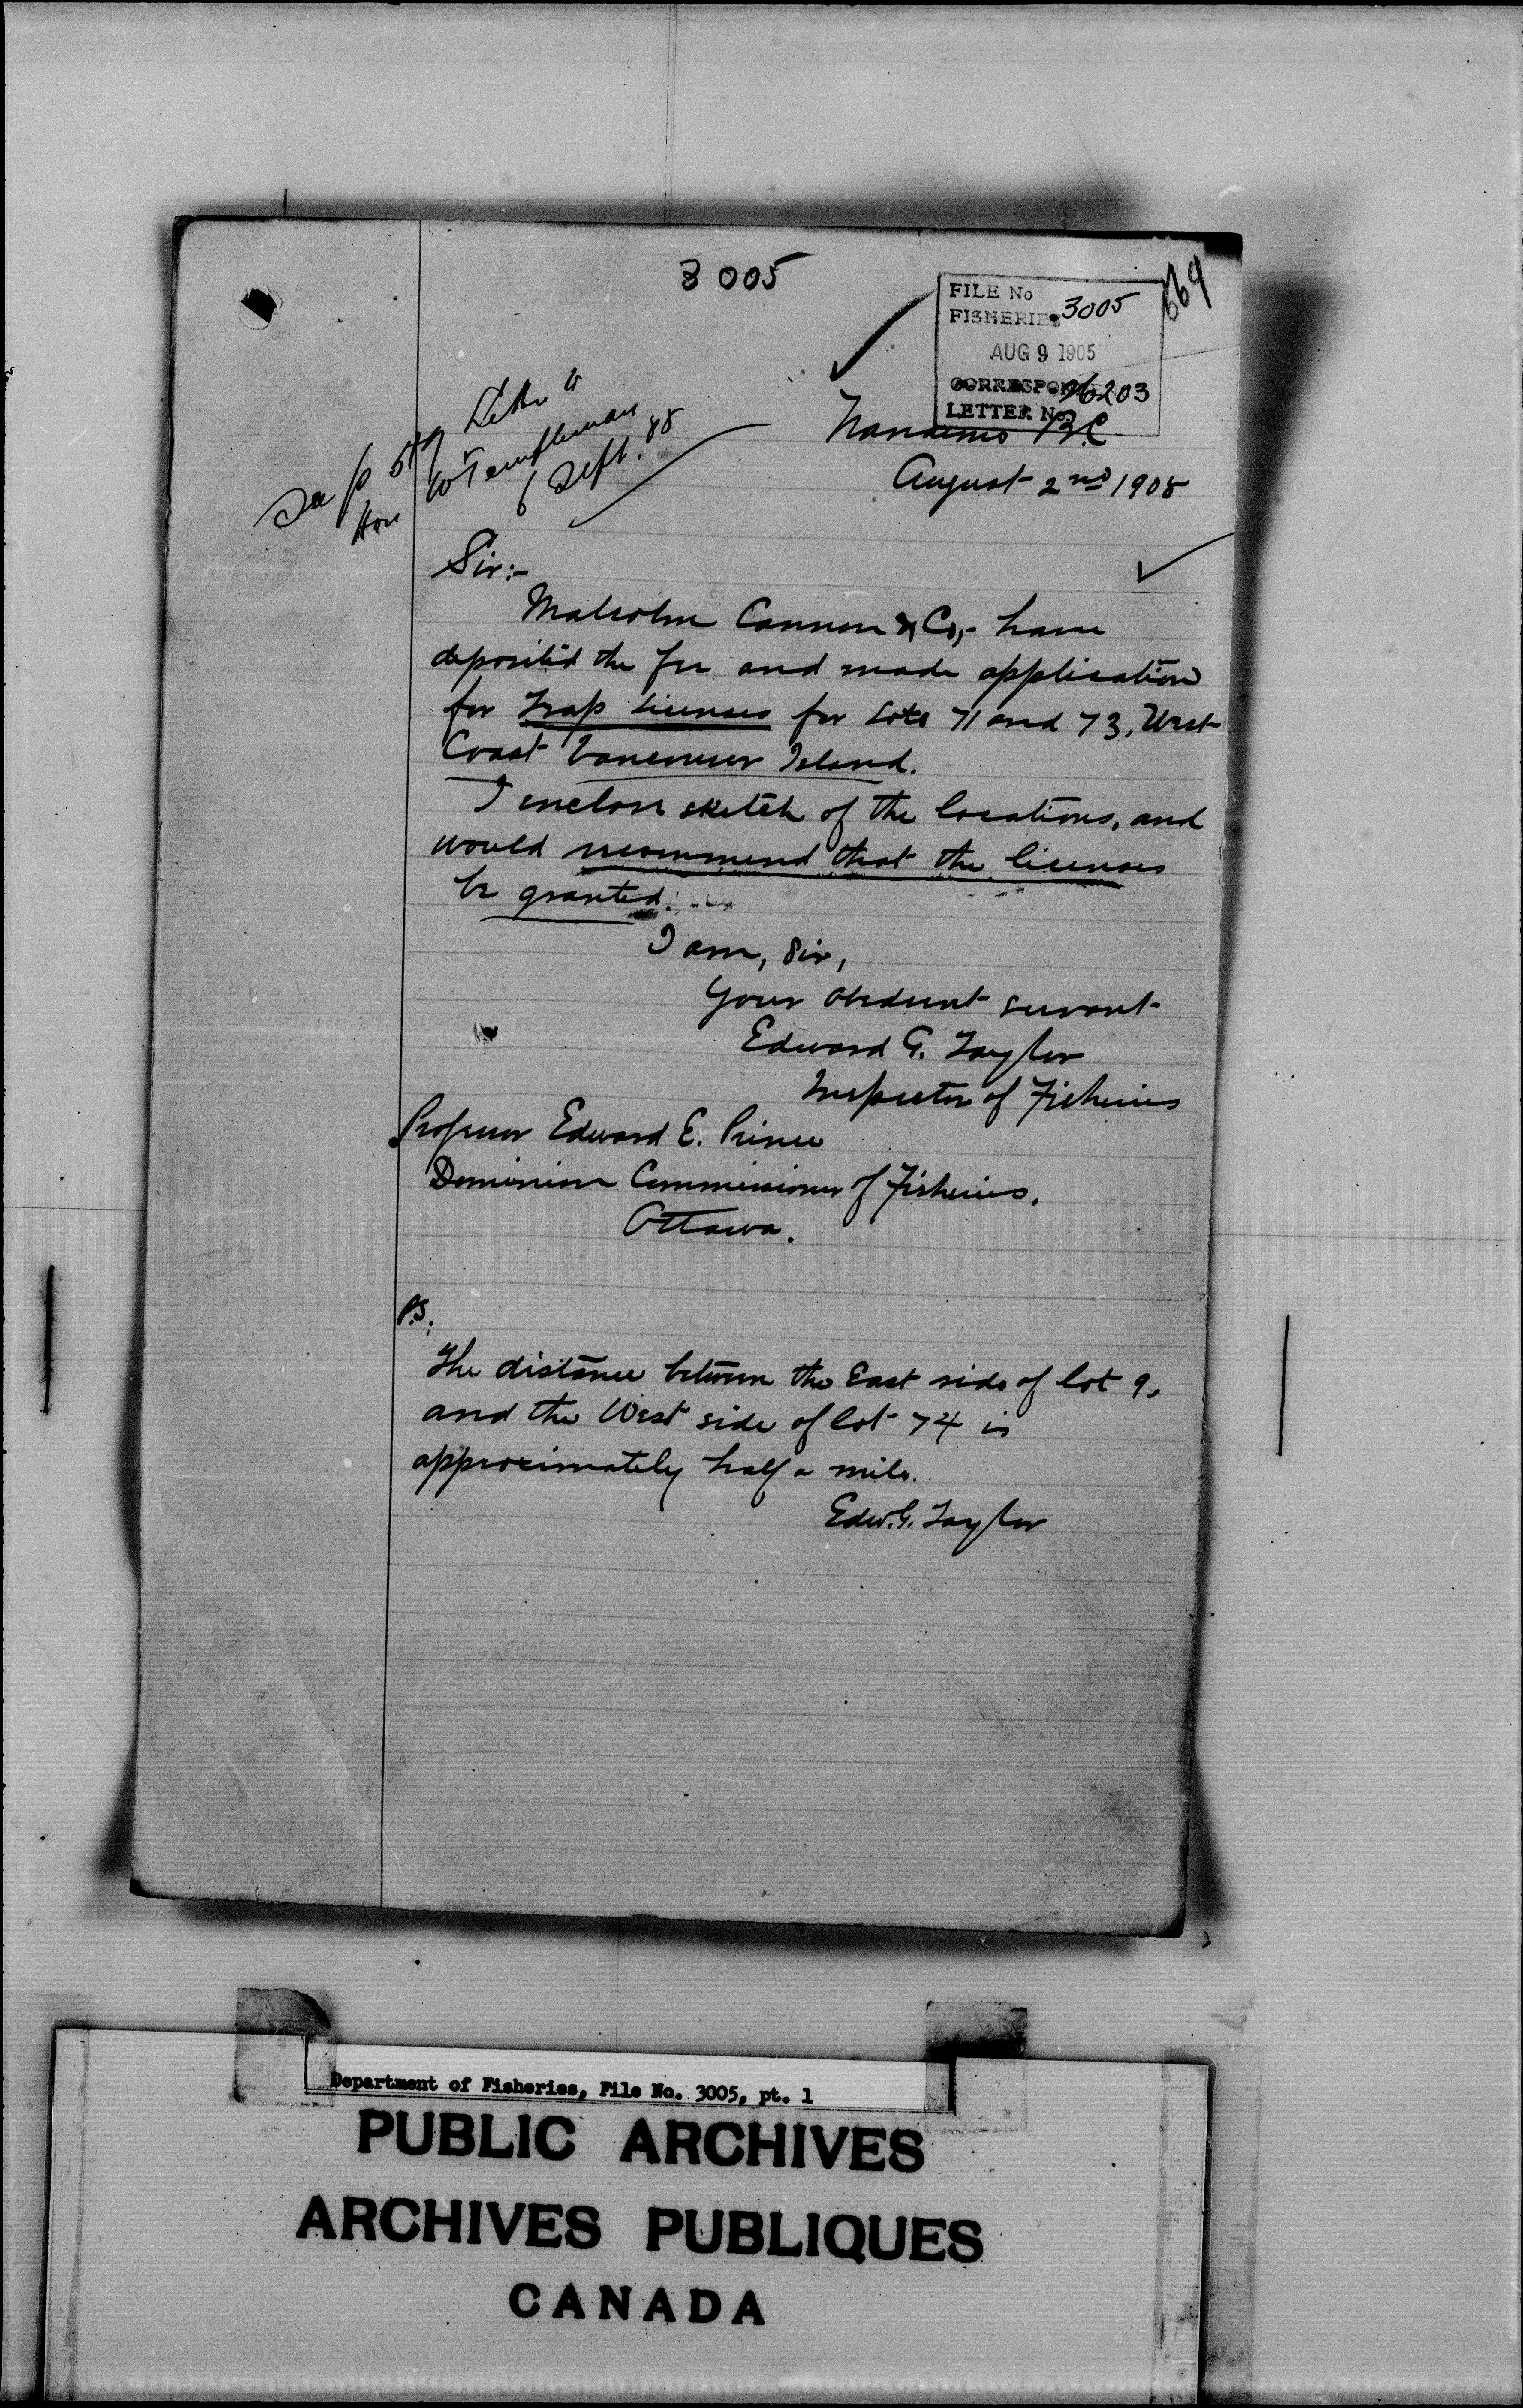 3005
669
FILE No 3005
FISHERIES
AUG 9 1905
CORRESPON 26203
LETTER No.
See p 579 Letter to
Hon W Templeman
6 Sept.
Nanaimo B.C
August 2nd 1905
Sir:-
Malcolm Cannon & Co,- have
deposited the fee and made application
for trap licenses for Lots 71 and 73, West
Coast Vancouver Island.
I enclose sketch of the locations, and
would recommend that the licenses
be granted.
I am, Sir,
Your obedient servant
Edward G. Taylor
Inspector of Fisheries
Professor Edward E. Prince
Dominion Commissioner of Fisheries.
Ottawa.
P.S.
The distance between the East side of lot 9,
and the West side of lot 74 is
approximately half a mile.
Edw. G. Taylor
Department of Fisheries, File No. 3005, pt. 1
PUBLIC ARCHIVES
ARCHIVES PUBLIQUES
CANADA